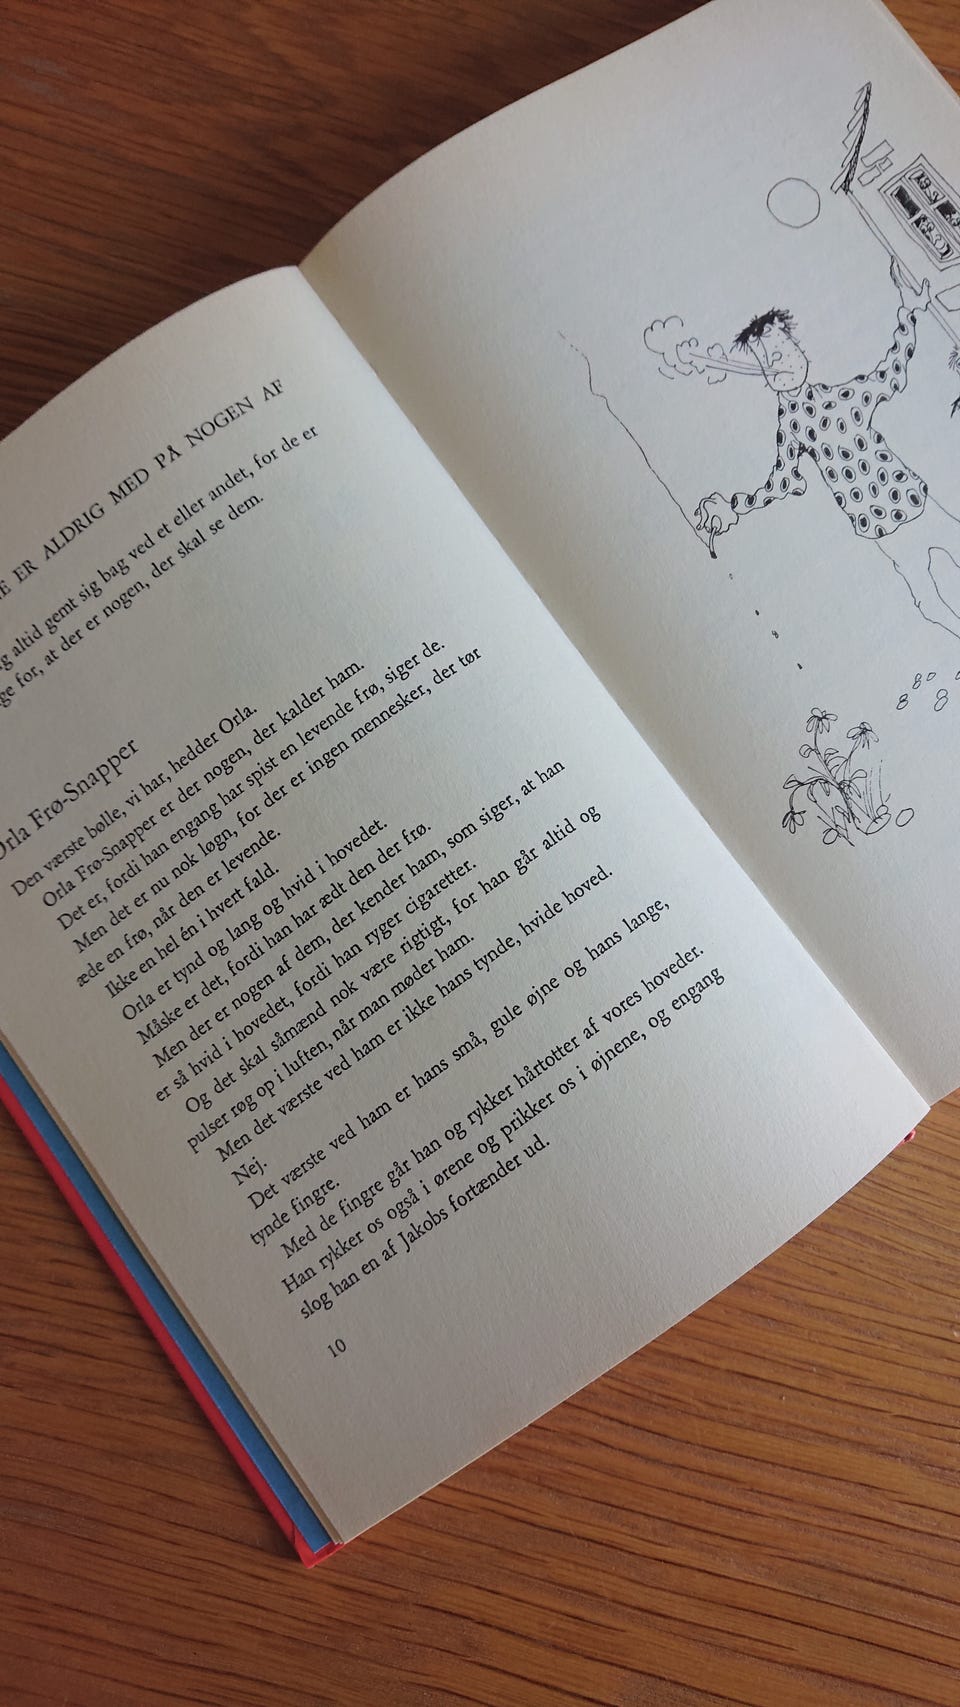 ER ALDRIG MED PÅ NOGEN AF
altid gemt sig bag ved et eller andet, for de er
for, at der er nogen, der skal se dem.
Orla Frø-Snapper
Den værste bølle, vi har, hedder Orla.
Orla Frø-Snapper er der nogen, der kalder ham.
Det er, fordi han engang har spist en levende frø, siger de.
Men det er nu nok løgn, for der er ingen mennesker, der tør
æde en frø, når den er levende.
Ikke en hel én i hvert fald.
Orla er tynd og lang og hvid i hovedet.
Måske er det, fordi han har ædt den der frø.
Men der er nogen af dem, der kender ham, som siger, at han
er så hvid i hovedet, fordi han ryger cigaretter.
Og det skal såmænd nok være rigtigt, for han går altid og
pulser røg op i luften, når man møder ham.
Men det værste ved ham er ikke hans tynde, hvide hoved.
Nej.
Det værste ved ham er hans små, gule øjne og hans lange,
tynde fingre.
Med de fingre går han og rykker hårtotter af vores hoveder.
Han rykker os også i ørene og prikker os i øjnene, og engang
slog han en af Jakobs fortænder ud.
10